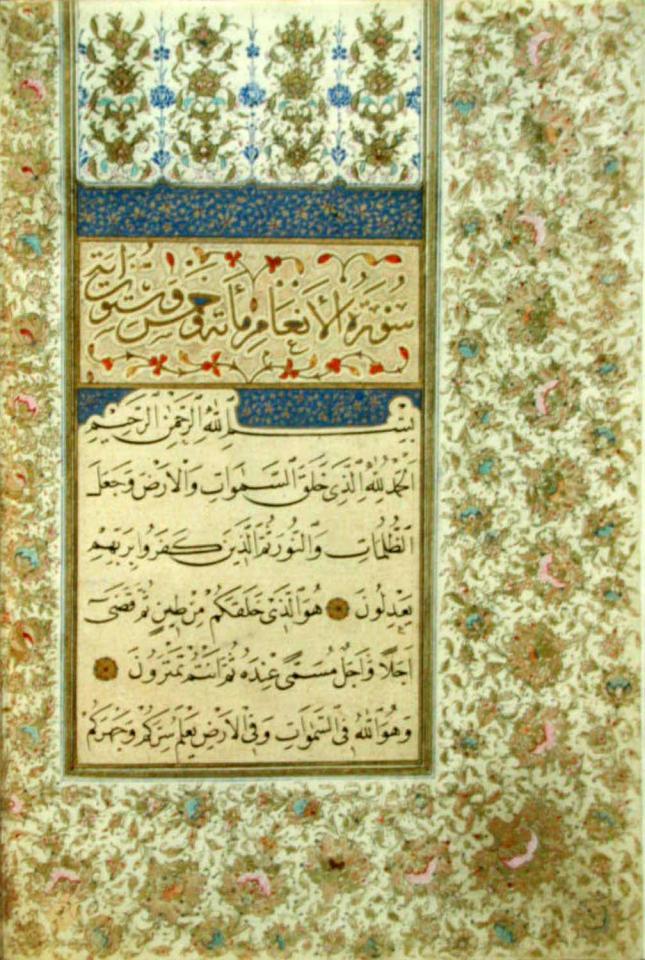 سُورَةُ الْأَنْعَامِ مِأَئَةٌ وَخَمْسٌ وَسِتُّونَ آيَةً
بِسْمِ اللهِ الرَّحْمٰنِ الرَّحِيمِ
اَلْحَمْدُ لِلّٰهِ الَّذِي خَلَقَ السَّمٰوَاتِ وَالْاَرْضَ وَجَعَلَ
الظُّلُمَاتِ وَالنُّورَ ثُمَّ الَّذِينَ كَفَرُوا بِرَبِّهِمْ
يَعْدِلُونَ هُوَ الَّذِي خَلَقَكُمْ مِنْ طِينٍ ثُمَّ قَضٰى
اَجَلًا وَاَجَلٌ مُسَمًّى عِنْدَهُ ثُمَّ اَنْتُمْ تَمْتَرُونَ
وَهُوَ اللّٰهُ فِي السَّمٰوَاتِ وَفِي الْاَرْضِ يَعْلَمُ سِرَّكُمْ وَجَهْرَكُمْ